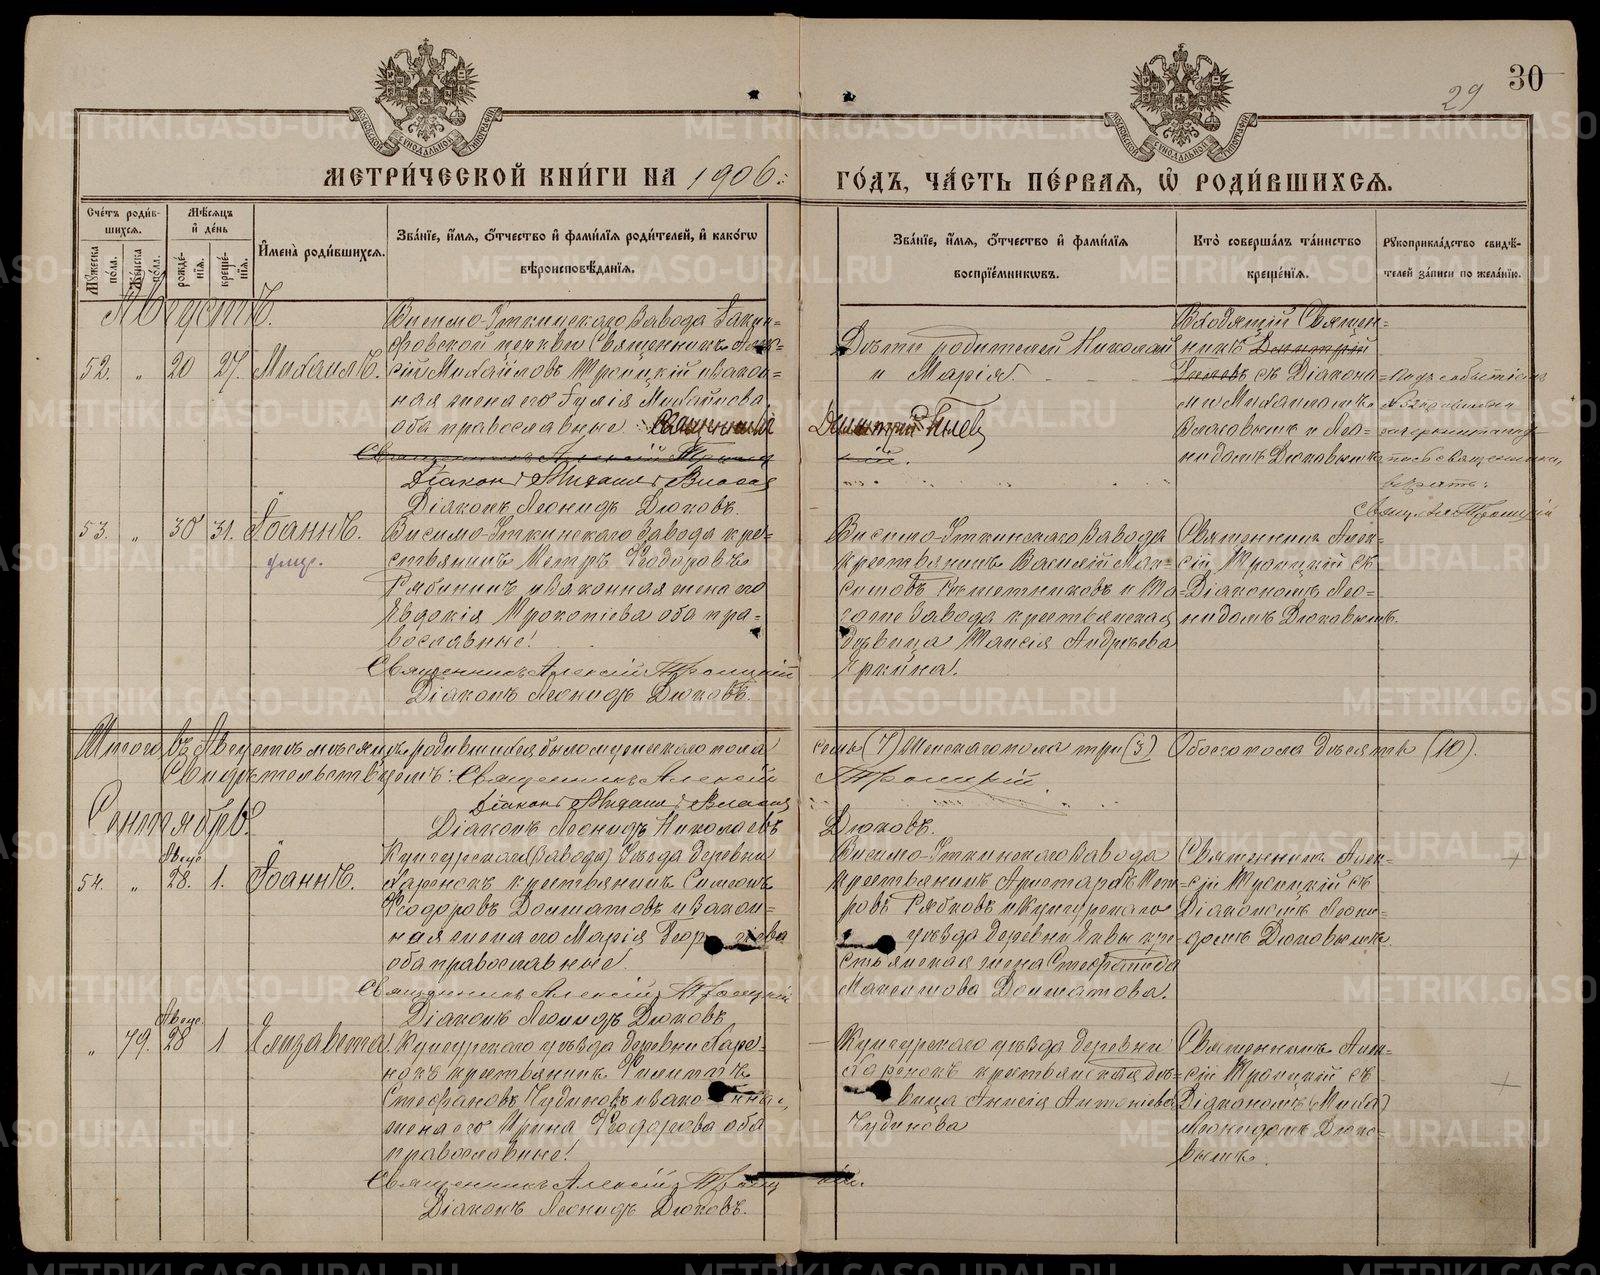 30
29
МЕТРИ́ЧЕСКОЙ КНИ́ГИ НА 1906
ГО́ДЪ, ЧА́СТЬ ПЕ́РВАЯ, Ѡ҆ РОДИ́ВШИХСЯ.
Сче́тъ роди́в-
шихся.
Мѣ́сяцъ
и҆ де́нь
Мꙋ́жеска
по́ла.
Же́нска
по́ла.
рожде́-
нїя.
креще́-
нїя.
И҆мена̀ роди́вшихся.
Зва́нїе, и҆́мя, ѻ҆́тчество и҆ фами́лїя роди́телей, и҆ како́гѡ
вѣроисповѣ́данїя.
Зва́нїе, и҆́мя, ѻ҆́тчество и҆ фами́лїя
воспрїе́мникѡвъ.
Кто̀ соверша́лъ та́инство
креще́нїя.
Рꙋкоприкла́дство свидѣ́-
телей за́писи по жела́нїю.
Августъ.
52. " 20 27. Михаилъ.
Висимо-Уткинскаго Завода Іакин-
фовской церкви Священникъ Алек-
сій Михайловъ Троицкій и закон-
ная жена его Юлія Михайлова
оба православные
Священникъ Алексій Троиц
кій.
Діаконъ Михаилъ Власов
Діаконъ Леонидъ Дюковъ.
Дѣти родителей Николай
и Марія.
Священ-
никъ Димитрій
съ Діакона-
ми Михаиломъ
Власовымъ и Лео-
нидомъ Дюковымъ
Свящ. Ал. Троицкій
53. " 30 31. Іоаннъ.
умер.
Висимо-Уткинскаго Завода кре-
стьянинъ Петръ Ѳеодоровъ
Рябининъ и законная жена его
Евдокія Прокопіева оба пра-
вославные.
Священникъ Алексій Троицкій
Діаконъ Леонидъ Дюковъ.
Висимо-Уткинскаго Завода
крестьянинъ Василій Мак-
симовъ Решетниковъ и то-
гоже Завода крестьянская
дѣвица Таисія Андреева
Священник Алек-
сій Троицкій съ
Діакономъ Лео-
нидомъ Дюковымъ.
Итого въ Августѣ мѣсяцѣ родившихся было мужескаго пола семь (7) Женскаго пола три (3) Обоего пола десять (10).
Свидѣтельствуютъ: Священникъ Алексій Троицкій.
Діаконъ Михаилъ Власов
Діаконъ Леонидъ Николаевъ Дюковъ.
Сентябрь.
54. " Авгус. 28. 1. Іоаннъ.
Кунгурскаго (Завода) Уѣзда деревни
крестьянинъ Симеонъ
Ѳеодоровъ Долматовъ и закон-
ная жена его Марія Георгіева
оба православные.
Священникъ Алексій Троицкій
Діаконъ Леонидъ Дюковъ
Висимо-Уткинскаго Завода
крестьянинъ Аристархъ Пет-
ровъ Рябковъ и Кунгурскаго
уѣзда деревни кре-
стьянская жена Стефанида
Максимова Долматова.
Священник Алек-
сій Троицкій съ
Діакономъ Леони-
домъ Дюковымъ.
" 79. Авгус. 28 1 Елизавета.
Кунгурскаго уѣзда деревни
крестьянинъ Филиппъ
Стефановъ Чудиновъ и законная
жена его Ирина Ѳеодорова оба
православные.
Священникъ Алексій Троицкій.
Діаконъ Леонидъ Дюковъ.
Кунгурскаго уѣзда деревни
крестьянская дѣ-
вица Анисія Антоніева
Чудинова
Священникъ Алек-
сій Троицкій съ
Діакономъ (Миха)
Леонидомъ Дюко-
вымъ.
METRIKI.GASO-URAL.RU